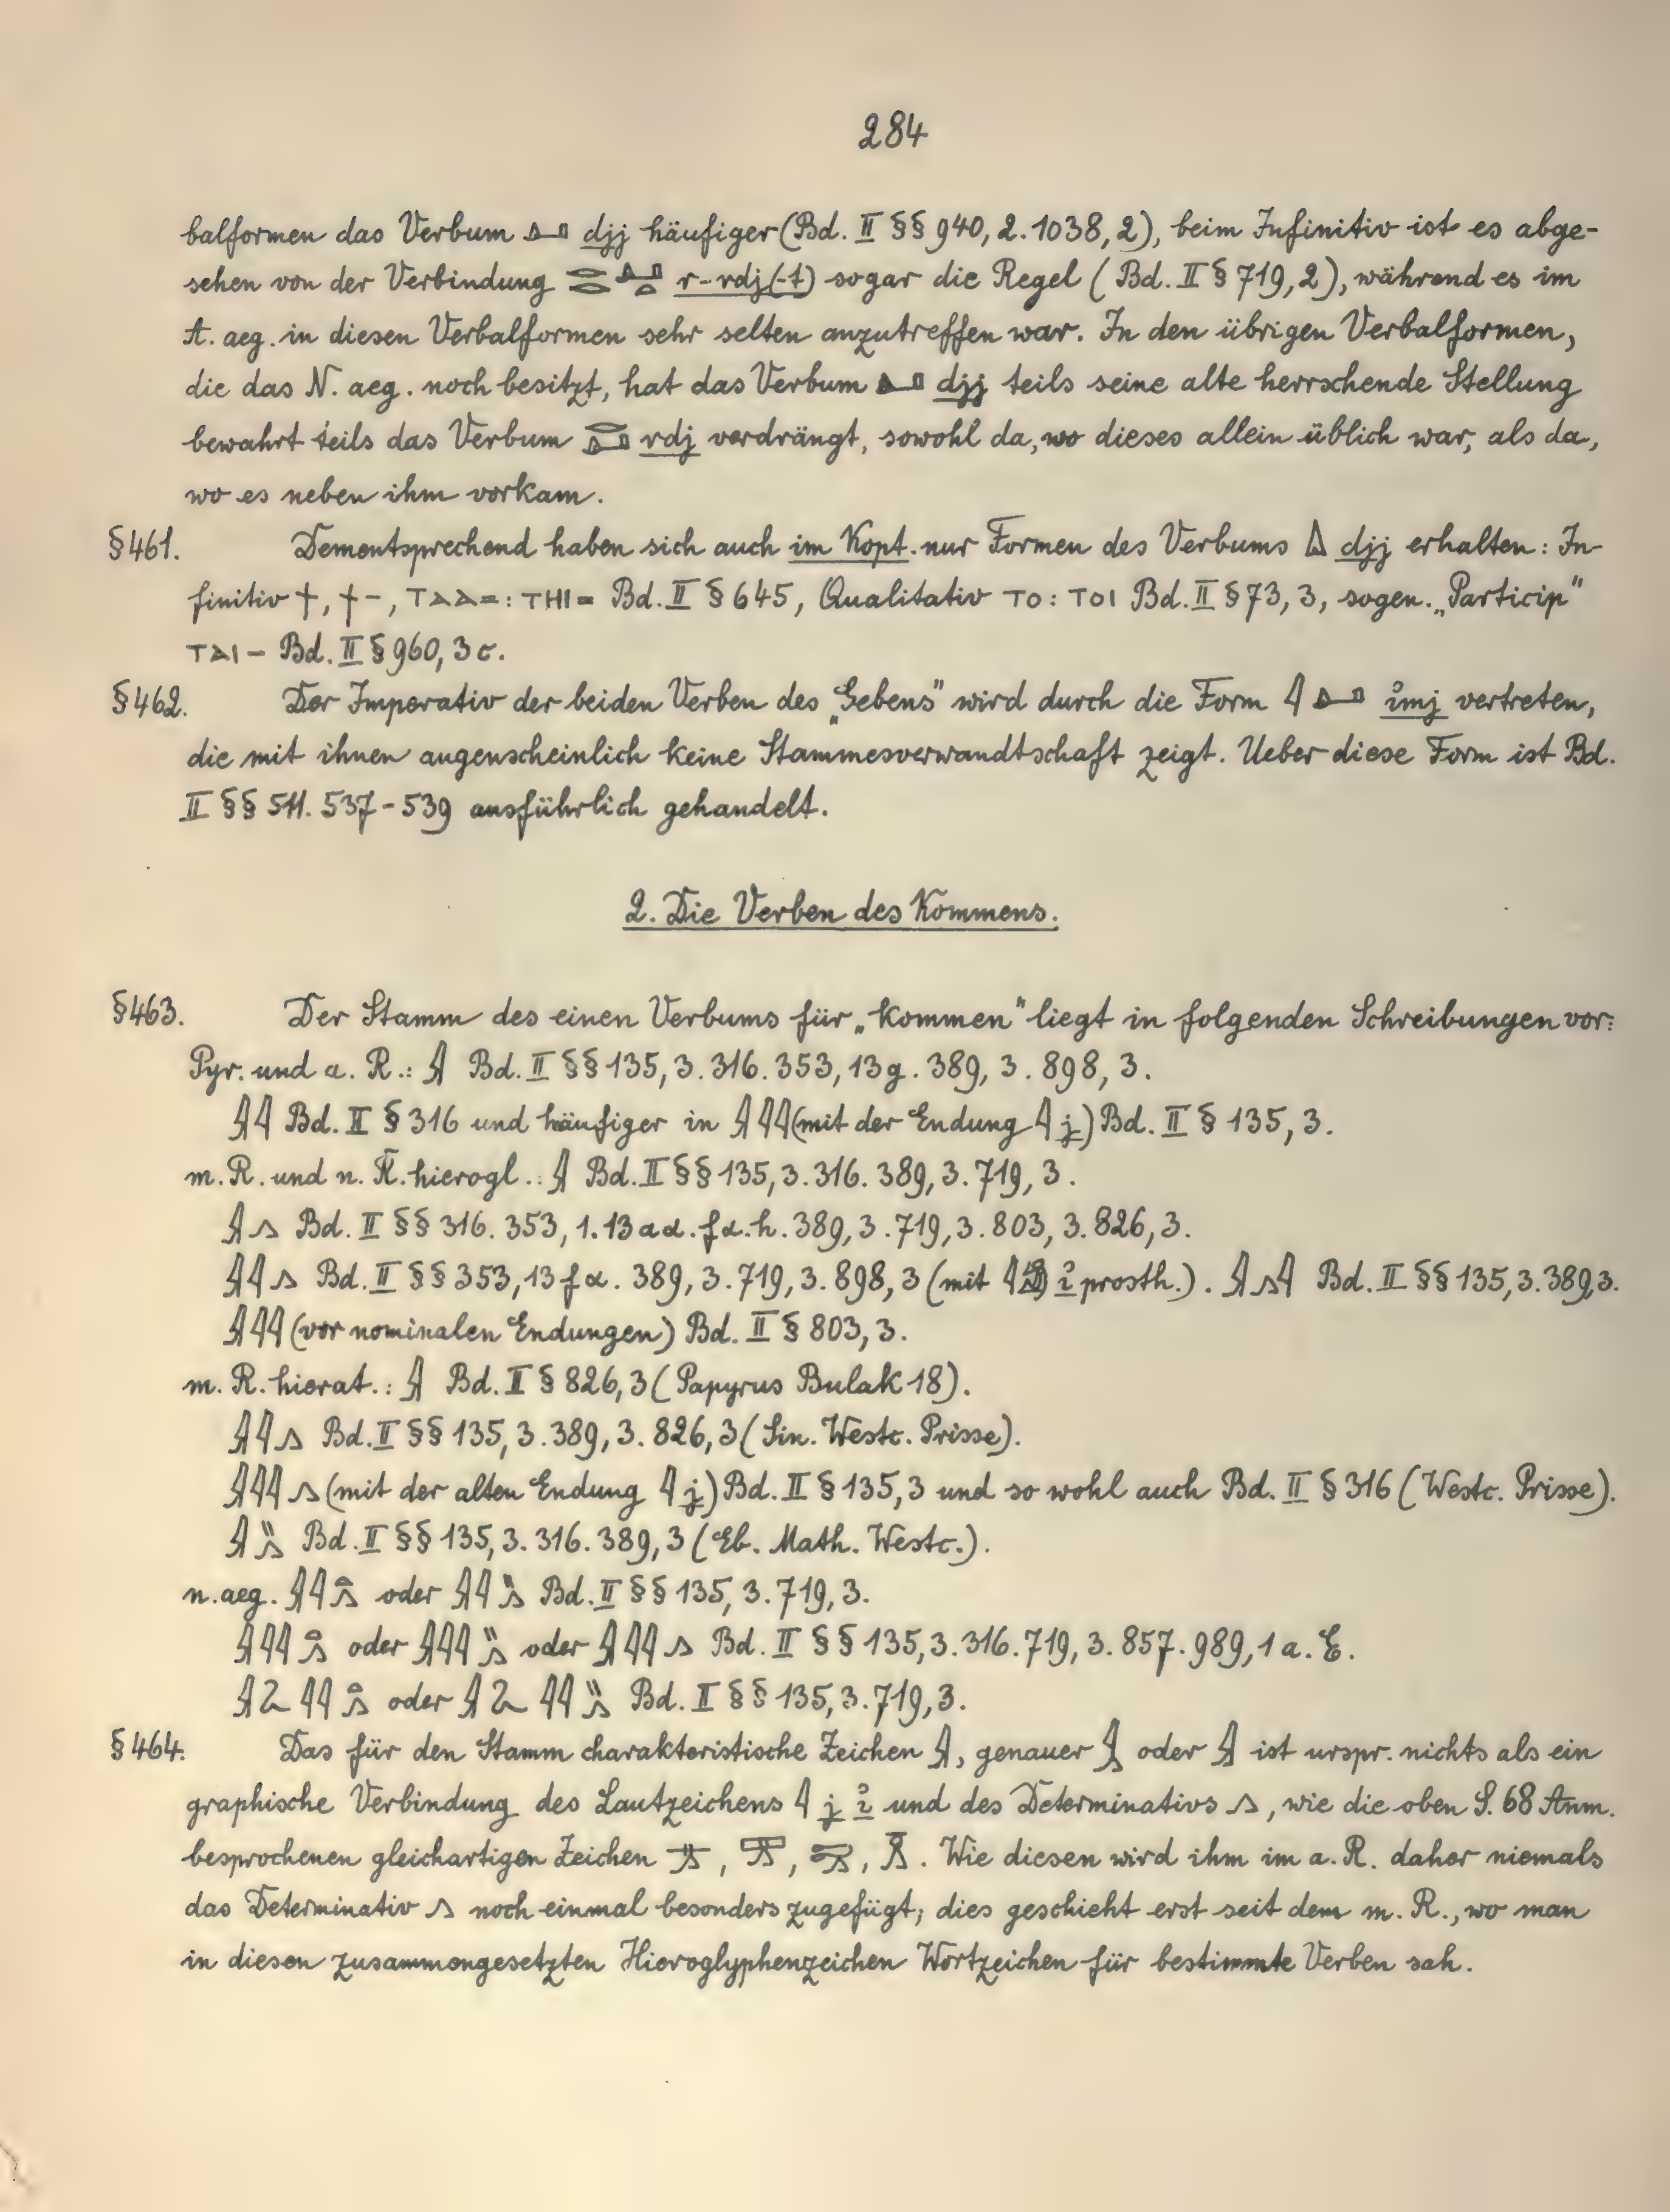 284
balformen das Verbum 𓂞 djj häufiger (Bd. II §§ 940, 2. 1038, 2), beim Infinitiv ist es abge-
sehen von der Verbindung r-rdj(-t) sogar die Regel (Bd. II § 719, 2), während es im
A. aeg. in diesen Verbalformen sehr selten anzutreffen war. In den übrigen Verbalformen,
die das N. aeg. noch besitzt, hat das Verbum 𓂞 djj teils seine alte herrschende Stellung
bewahrt teils das Verbum 𓂋𓂞 rdj verdrängt, sowohl da, wo dieses allein üblich war, als da,
wo es neben ihm vorkam.
§ 461. Dementsprechend haben sich auch im Kopt. nur Formen des Verbums djj erhalten: In-
finitiv ϯ, ϯ-, ⲧⲁⲁ=: ⲧⲏⲓ= Bd. II § 645, Qualitativ ⲧⲟ: ⲧⲟⲓ Bd. II § 73, 3, sogen. „Particip"
ⲧⲁⲓ- Bd. II § 960, 3 c.
§ 462. Der Imperativ der beiden Verben des „Gebens" wird durch die Form 𓇋𓂞 ı͗mj vertreten,
die mit ihnen augenscheinlich keine Stammesverwandtschaft zeigt. Ueber diese Form ist Bd.
II §§ 511. 537-539 ausführlich gehandelt.
2. Die Verben des Kommens.
§ 463. Der Stamm des einen Verbums für „kommen" liegt in folgenden Schreibungen vor:
Pyr. und a. R.: 𓇍 Bd. II §§ 135, 3. 316. 353, 13 g. 389, 3. 898, 3.
𓇍𓇋 Bd. II § 316 und häufiger in 𓇍𓇋𓇋 (mit der Endung 𓇋 j) Bd. II § 135, 3.
m. R. und n. R. hierogl.: 𓇍 Bd. II §§ 135, 3. 316. 389, 3. 719, 3.
𓇍𓂻 Bd. II §§ 316. 353, 1. 13 aα. fα. h. 389, 3. 719, 3. 803, 3. 826, 3.
𓇍𓇋𓂻 Bd. II §§ 353, 13 fα. 389, 3. 719, 3. 898, 3 (mit ı͗ prosth.). 𓇍𓂻𓇋 Bd. II §§ 135, 3. 389, 3.
𓇍𓇋𓇋 (vor nominalen Endungen) Bd. II § 803, 3.
m. R. hierat.: 𓇍 Bd. II § 826, 3 (Papyrus Bulak 18).
𓇍𓇋𓂻 Bd. II §§ 135, 3. 389, 3. 826, 3 (Sin. Westc. Prisse).
𓇍𓇋𓇋𓂻 (mit der alten Endung 𓇋 j) Bd. II § 135, 3 und so wohl auch Bd. II § 316 (Westc. Prisse).
𓇍𓏭𓂻 Bd. II §§ 135, 3. 316. 389, 3 (Eb. Math. Westc.).
n. aeg. 𓇍𓇋𓏏𓂻 oder 𓇍𓇋𓏭𓂻 Bd. II §§ 135, 3. 719, 3.
𓇍𓇋𓇋𓏏𓂻 oder 𓇍𓇋𓇋𓏭𓂻 oder 𓇍𓇋𓇋𓂻 Bd. II §§ 135, 3. 316. 719, 3. 857. 989, 1 a. E.
𓇍𓏲𓇋𓇋𓏏𓂻 oder 𓇍𓏲𓇋𓇋𓏭𓂻 Bd. II §§ 135, 3. 719, 3.
§ 464. Das für den Stamm charakteristische Zeichen 𓇍, genauer oder 𓇍 ist urspr. nichts als ein
graphische Verbindung des Lautzeichens 𓇋 j ı͗ und des Determinativs 𓂻, wie die oben S. 68 Anm.
besprochenen gleichartigen Zeichen. Wie diesen wird ihm im a. R. daher niemals
das Determinativ 𓂻 noch einmal besonders zugefügt; dies geschieht erst seit dem m. R., wo man
in diesen zusammengesetzten Hieroglyphenzeichen Wortzeichen für bestimmte Verben sah.